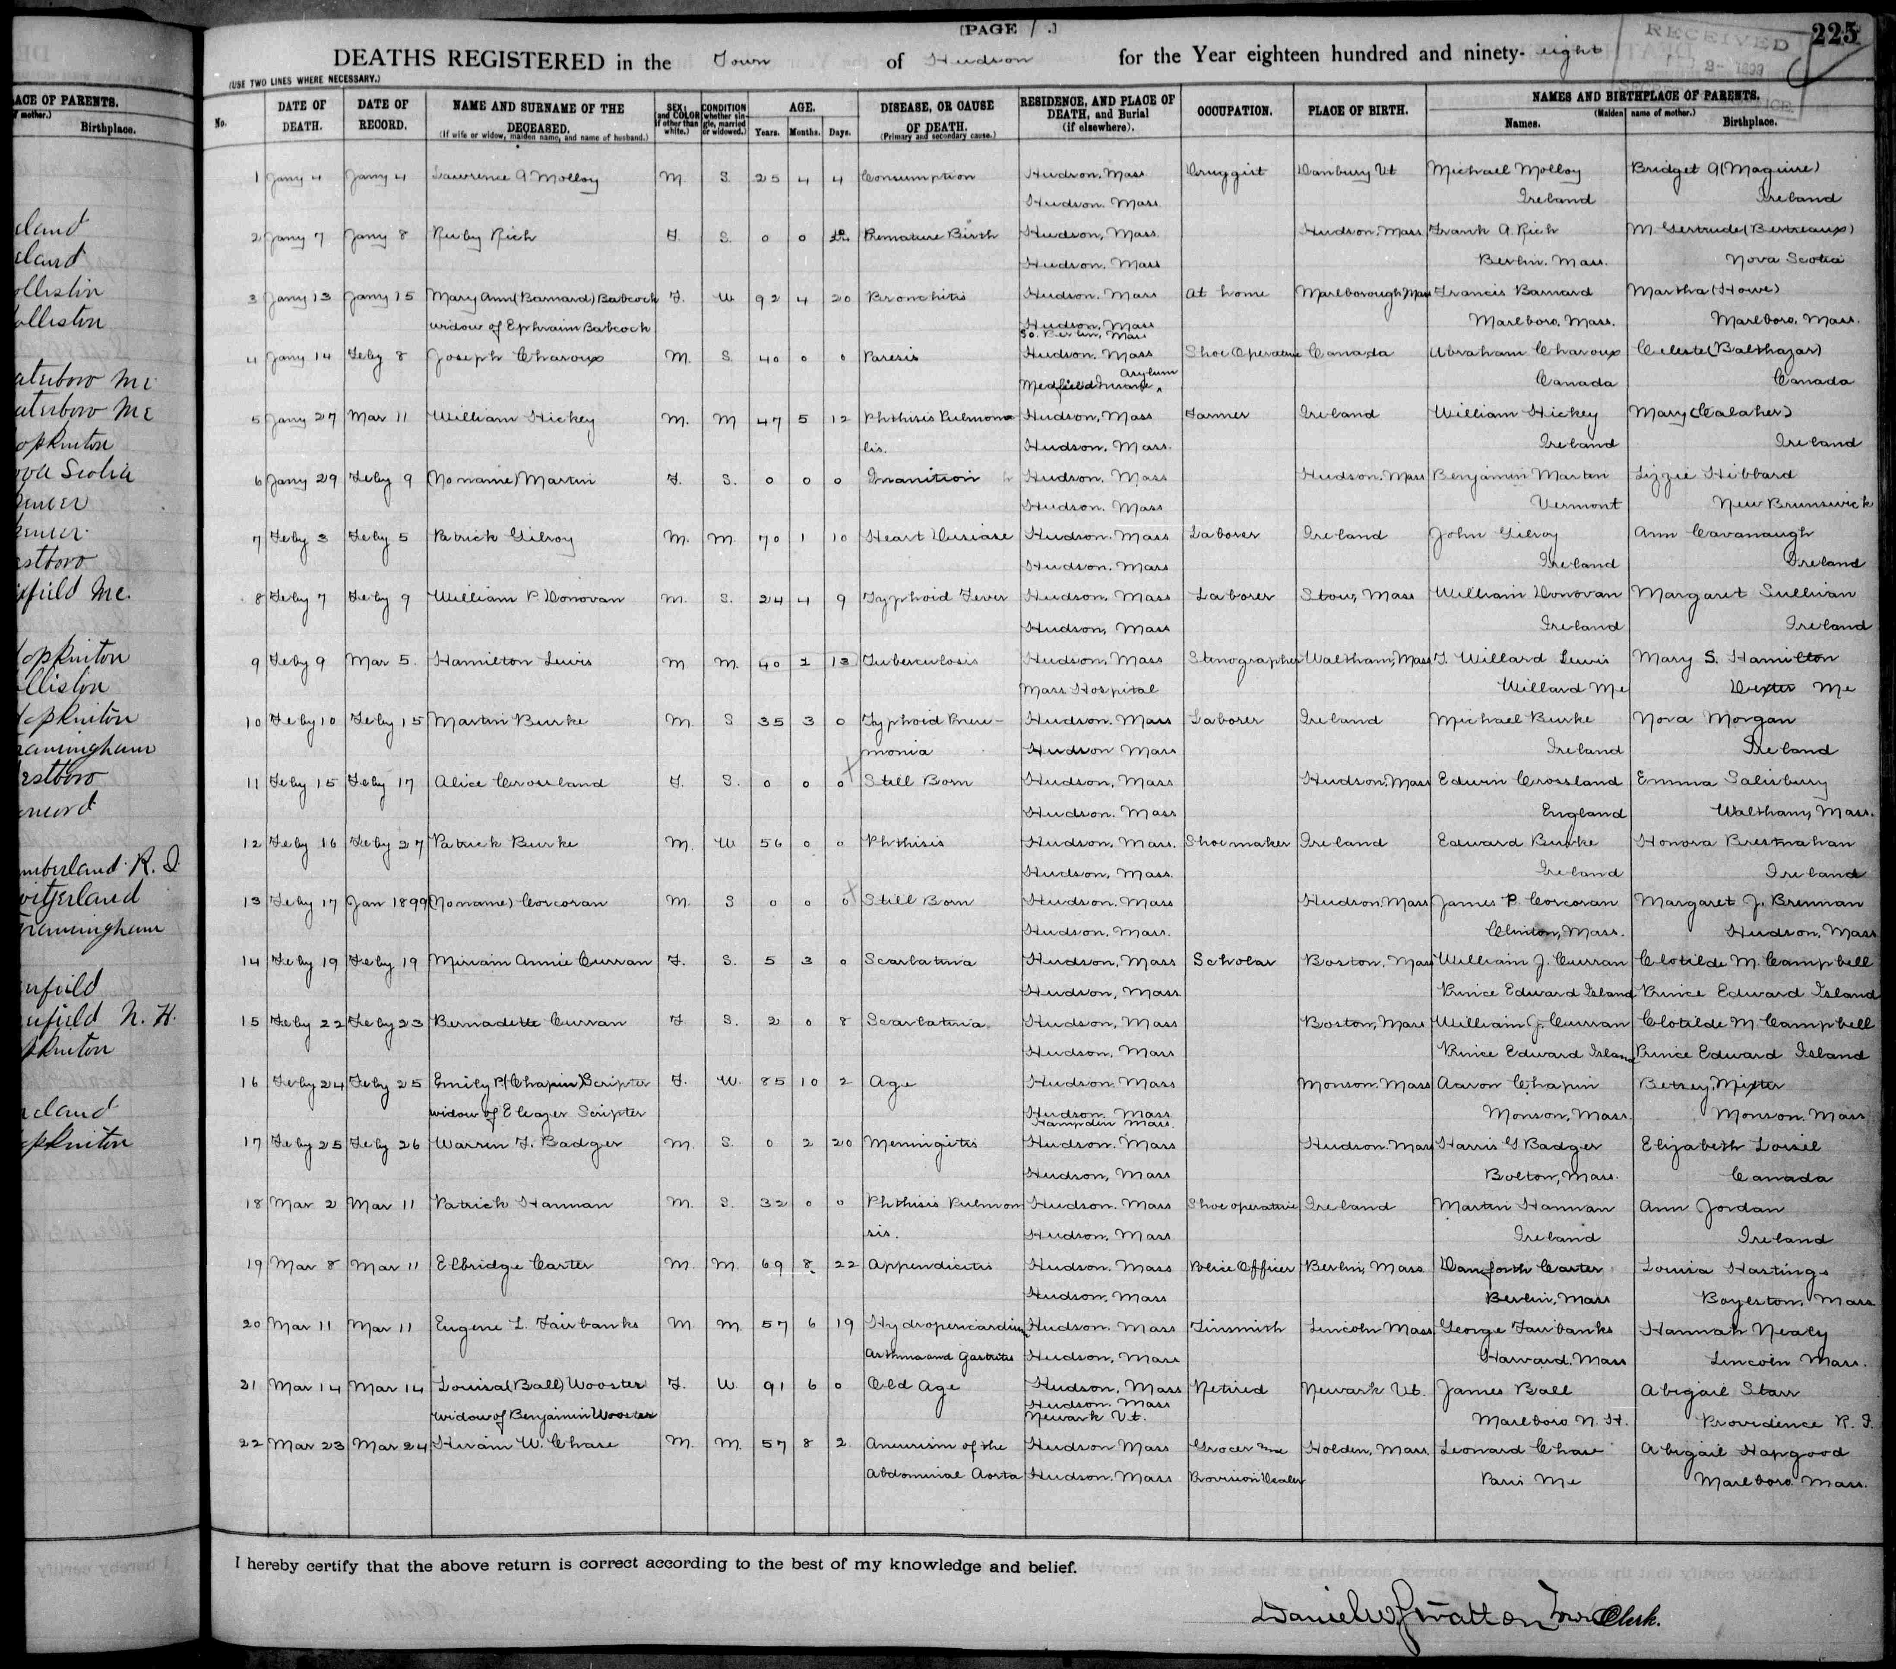 LACE OF PARENTS.
f mother.)
Birthplace.
eland
eland
ollistin
olliston
aterboro Me
aterboro Me
opkinton
ova Scotia
encer
encer
estboro
xfield Me.
opkinton
olliston
opkinton
ramingham
estboro
oncord
umberland R. I.
witzerland
Framingham
enfield
enfield N. H.
opkinton
reland
opkinton
[PAGE 1.]
225
RECEIVED
DEATHS REGISTERED in the Town of Hudson for the Year eighteen hundred and ninety-eight
(USE TWO LINES WHERE NECESSARY.)
No. DATE OF DEATH. DATE OF RECORD. NAME AND SURNAME OF THE DECEASED. (If wife or widow, maiden name, and name of husband.) SEX; (and COLOR if other than white.) CONDITION (whether single, married or widowed.) AGE. Years. Months. Days. DISEASE, OR CAUSE OF DEATH. (Primary and secondary cause.) RESIDENCE, AND PLACE OF DEATH, and Burial (if elsewhere). OCCUPATION. PLACE OF BIRTH. NAMES AND BIRTHPLACE OF PARENTS. (Maiden name of mother.) Names. Birthplace.
1 Jany 4 Jany 4 Lawrence A Molloy M. S. 25 4 4 Consumption Hudson, Mass Druggist Danbury Vt Michael Molloy Bridget A (Maguire)
Hudson. Mass Ireland Ireland
2 Jany 7 Jany 8 Ruby Rich F. S. 0 0 Premature Birth Hudson, Mass. Hudson, Mass Frank A. Rich M. Gertrude (Bertreaux)
Hudson. Mass Berlin. Mass. Nova Scotia
3 Jany 13 Jany 15 Mary Ann (Barnard) Babcock F. W. 92 4 20 Bronchitis Hudson. Mass At home Marlborough Mass Francis Barnard Martha (Howe)
widow of Ephraim Babcock Hudson, Mass Marlboro, Mass. Marlboro, Mass.
So. Berlin, Mass
4 Jany 14 Feby 8 Joseph Charoux M. S. 40 0 0 Paresis Hudson. Mass Shoe Operative Canada Abraham Charoux Celeste (Balthazar)
Medfield Insane Asylum Canada Canada
5 Jany 27 Mar 11 William Hickey M. M 47 5 12 Phthisis Pulmona Hudson, Mass Farmer Ireland William Hickey Mary (Calaher)
lis. Hudson, Mass. Ireland Ireland
6 Jany 29 Feby 9 (No name) Martin F. S. 0 0 0 Inanition Hudson. Mass Hudson. Mass Benjamin Martin Lizzie Hibbard
Hudson. Mass Vermont New Brunswick
7 Feby 3 Feby 5 Patrick Gilroy M. M. 70 1 10 Heart Disease Hudson. Mass Laborer Ireland John Gilroy Ann Cavanaugh
Hudson. Mass Ireland Ireland
8 Feby 7 Feby 9 William P Donovan M. S. 24 4 9 Typhoid Fever Hudson, Mass Laborer Stow, Mass William Donovan Margaret Sullivan
Hudson, Mass Ireland Ireland
9 Feby 9 Mar 5. Hamilton Lewis M M. 40 1 13 Tuberculosis Hudson, Mass Stenographer Waltham, Mass F. Willard Lewis Mary S. Hamilton
Mass Hospital Willard Me Dexter Me
10 Feby 10 Feby 15 Martin Burke M. S 35 3 0 Typhoid Pneu- Hudson. Mass Laborer Ireland Michael Burke Nora Morgan
monia Hudson Mass Ireland Ireland
11 Feby 15 Feby 17 Alice Crossland F. S. 0 0 0 Still Born Hudson, Mass Hudson, Mass Edwin Crossland Emma Salisbury
Hudson. Mass England Waltham, Mass.
12 Feby 16 Feby 27 Patrick Burke M. W 56 0 0 Phthisis Hudson, Mass. Shoemaker Ireland Edward Burke Honora Bresnahan
Hudson, Mass. Ireland Ireland
13 Feby 17 Jan 1899 (No name) Corcoran M. S 0 0 0 Still Born Hudson. Mass Hudson Mass James P. Corcoran Margaret J. Brennan
Hudson, Mass. Clinton, Mass. Hudson, Mass
14 Feby 19 Feby 19 Miriam Annie Curran F. S. 5 3 0 Scarlatina Hudson, Mass Scholar Boston, Mass William J. Curran Clotilde M. Campbell
Hudson, Mass Prince Edward Island Prince Edward Island
15 Feby 22 Feby 23 Bernadette Curran F S. 2 0 8 Scarlatina Hudson, Mass Boston, Mass William J. Curran Clotilde M. Campbell
Hudson, Mass Prince Edward Island Prince Edward Island
16 Feby 24 Feby 25 Emily P (Chapin) Scripter F. W. 85 10 2 Age Hudson. Mass Monson. Mass Aaron Chapin Betsey Mixter
widow of Eleazer Scripter Hudson. Mass Monson, Mass. Monson. Mass
Hampden Mass.
17 Feby 25 Feby 26 Warren F. Badger M. S. 0 2 20 Meningitis Hudson. Mass Hudson. Mass Harris G Badger Elizabeth Loisel
Hudson, Mass Bolton, Mass. Canada
18 Mar 2 Mar 11 Patrick Hannan M. S. 32 0 0 Phthisis Pulmon Hudson. Mass Shoe operative Ireland Martin Hannan Ann Jordan
sis. Hudson, Mass Ireland Ireland
19 Mar 8 Mar 11 Elbridge Carter M. M. 69 8 22 Appendicitis Hudson. Mass Police Officer Berlin, Mass Danforth Carter Louisa Hastings
Hudson. Mass Berlin, Mass Boylston, Mass
20 Mar 11 Mar 11 Eugene L. Fairbanks M. M. 57 6 19 Hydropericardium Hudson. Mass Tinsmith Lincoln Mass George Fairbanks Hannah Nealy
Asthma and Gastritis Hudson, Mass Harvard. Mass Lincoln Mass.
21 Mar 14 Mar 14 Louisa (Ball) Wooster F. W. 91 6 0 Old Age Hudson, Mass Retired Newark Vt. James Ball Abigail Starr
widow of Benjamin Wooster Hudson. Mass Marlboro N. H. Providence R. I.
Newark Vt.
22 Mar 23 Mar 24 Hiram W. Chase M. M. 57 8 2 Aneurism of the Hudson Mass Grocer and Holden, Mass. Leonard Chase Abigail Hapgood
Abdominal Aorta Hudson. Mass Provision Dealer Paris Me Marlboro Mass.
I hereby certify that the above return is correct according to the best of my knowledge and belief.
Daniel W. Stratton Town Clerk.